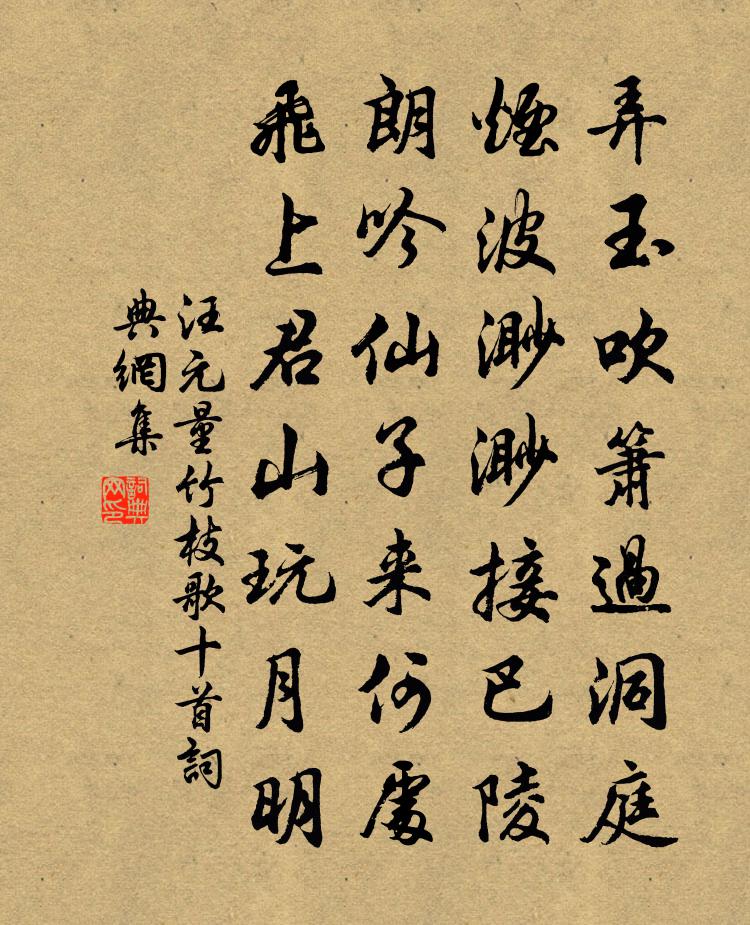 弄玉吹簫過洞庭
煙波渺渺接巴陵
朗吟仙子来何處
飛上君山玩月明
汪元量竹枝歌十首詞
典網集
詞典
网印